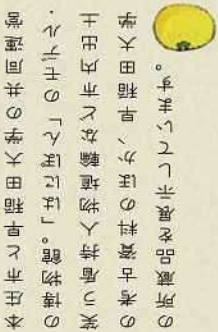 本庄市と早稲田大学の共同運営
の博物館。「はにぽん」のモデル・
笑う盾持人物埴輪など市内出土
の考古資料のほか、早稲田大学
の所蔵品を展示しています。